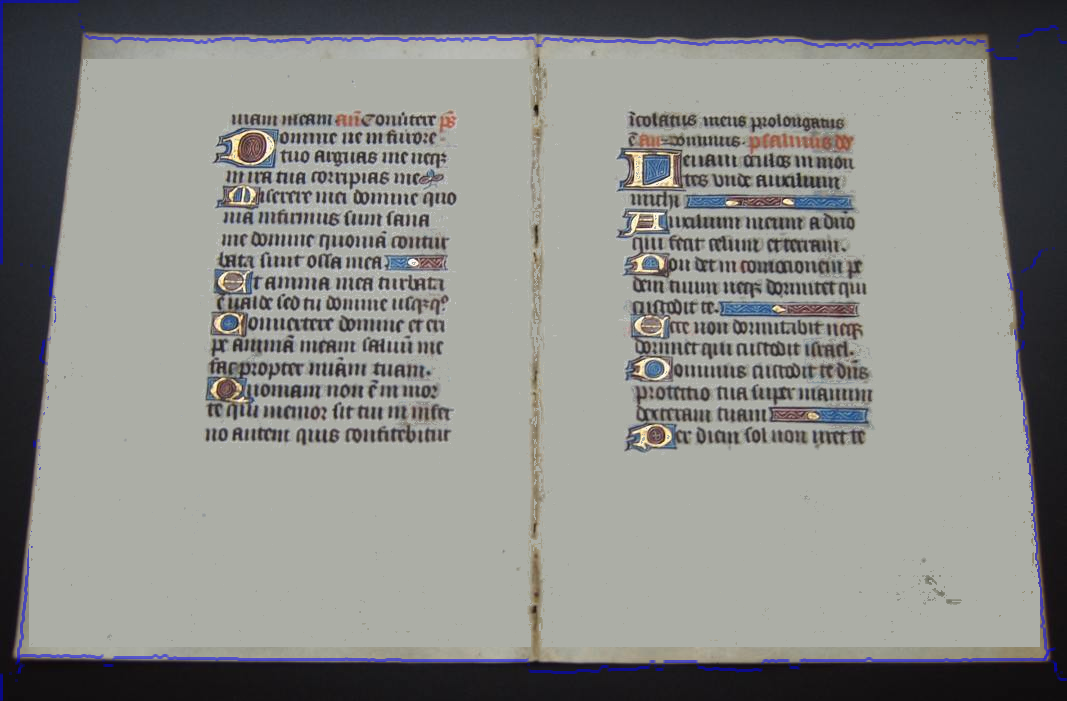 niam meam añ Conũtere p̃s
Domine ne in furore
tuo arguas me neq;
in ira tua corripias me
Miserere mei domine quo
niã infirmus sum sana
me domine quoniã contur
bata sunt ossa mea.
Et anima mea turbata
ẽ ualde sed tu domine usq;q°
Conuertere domine et eri
pe animã meam saluũ me
fac propter miãm tuam.
Quoniam non ẽ in mor
te qui memor sit tui in infer
no autem quis confitebitur
ĩcolatus meus prolongatus
ẽ añ dominus. psalmus dd
Leuaui oculos in mon
tes vnde auxilium
michi
Auxilium meum a dño
qui fecit celum et terram.
Non det in comocionem pe
dem tuum neq; dormitet qui
custodit te.
Ecce non dormitabit neq;
dormiet qui custodit israel.
Dominus custodit te dñs
protectio tua super manum
dexteram tuam
Per diem sol non uret te